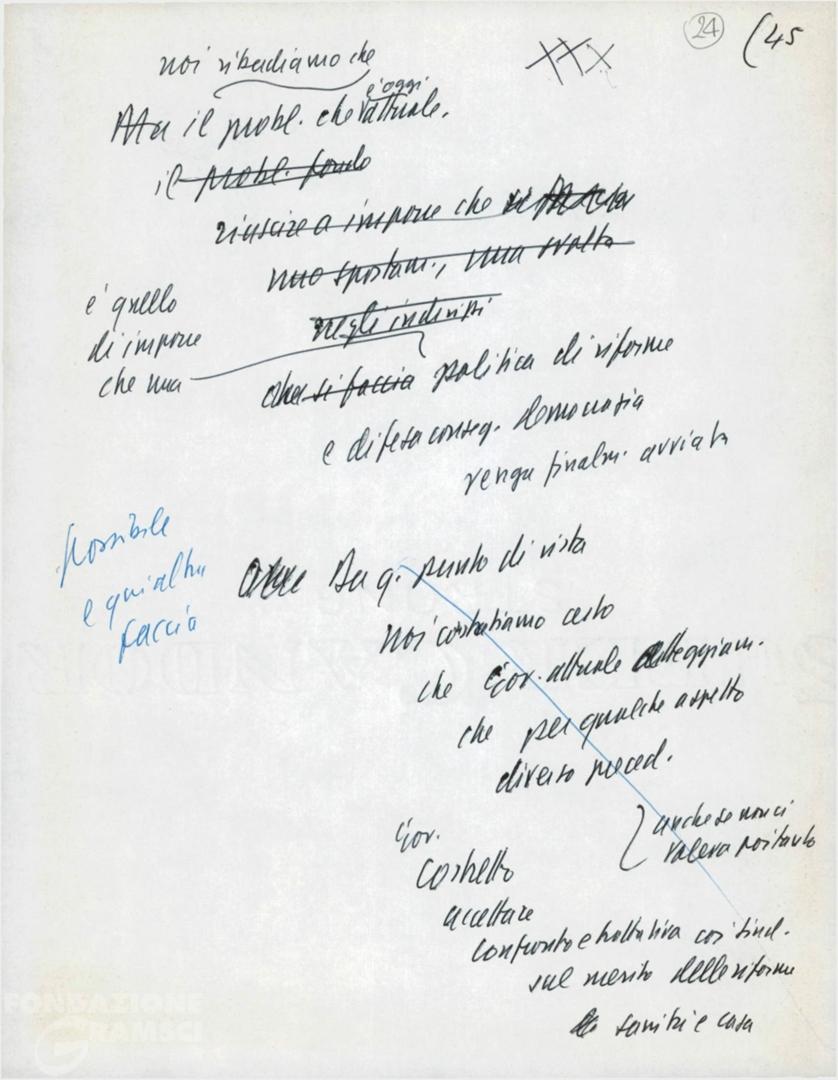 24
(45
XXX
noi ribadiamo che
Ma il probl. che è oggi attuale.
il probl. fondo
riuscire a imporre che si
uno spostam., una svolta
negli indirizzi
è quello
di imporre
che una
che si faccia politica di riforme
e difesa conseg. democrazia
venga finalm. avviata
possibile
e qui altra
faccia
Da q. punto di vista
noi constatiamo certo
che Gov. attuale atteggiam.
che per qualche aspetto
diverso preced.
anche se non ci
voleva poi tanto
Gov.
costretto
accettare
confronto e trattativa coi sind.
sul merito delle riforme
sanità e casa
FONDAZIONE
GRAMSCI